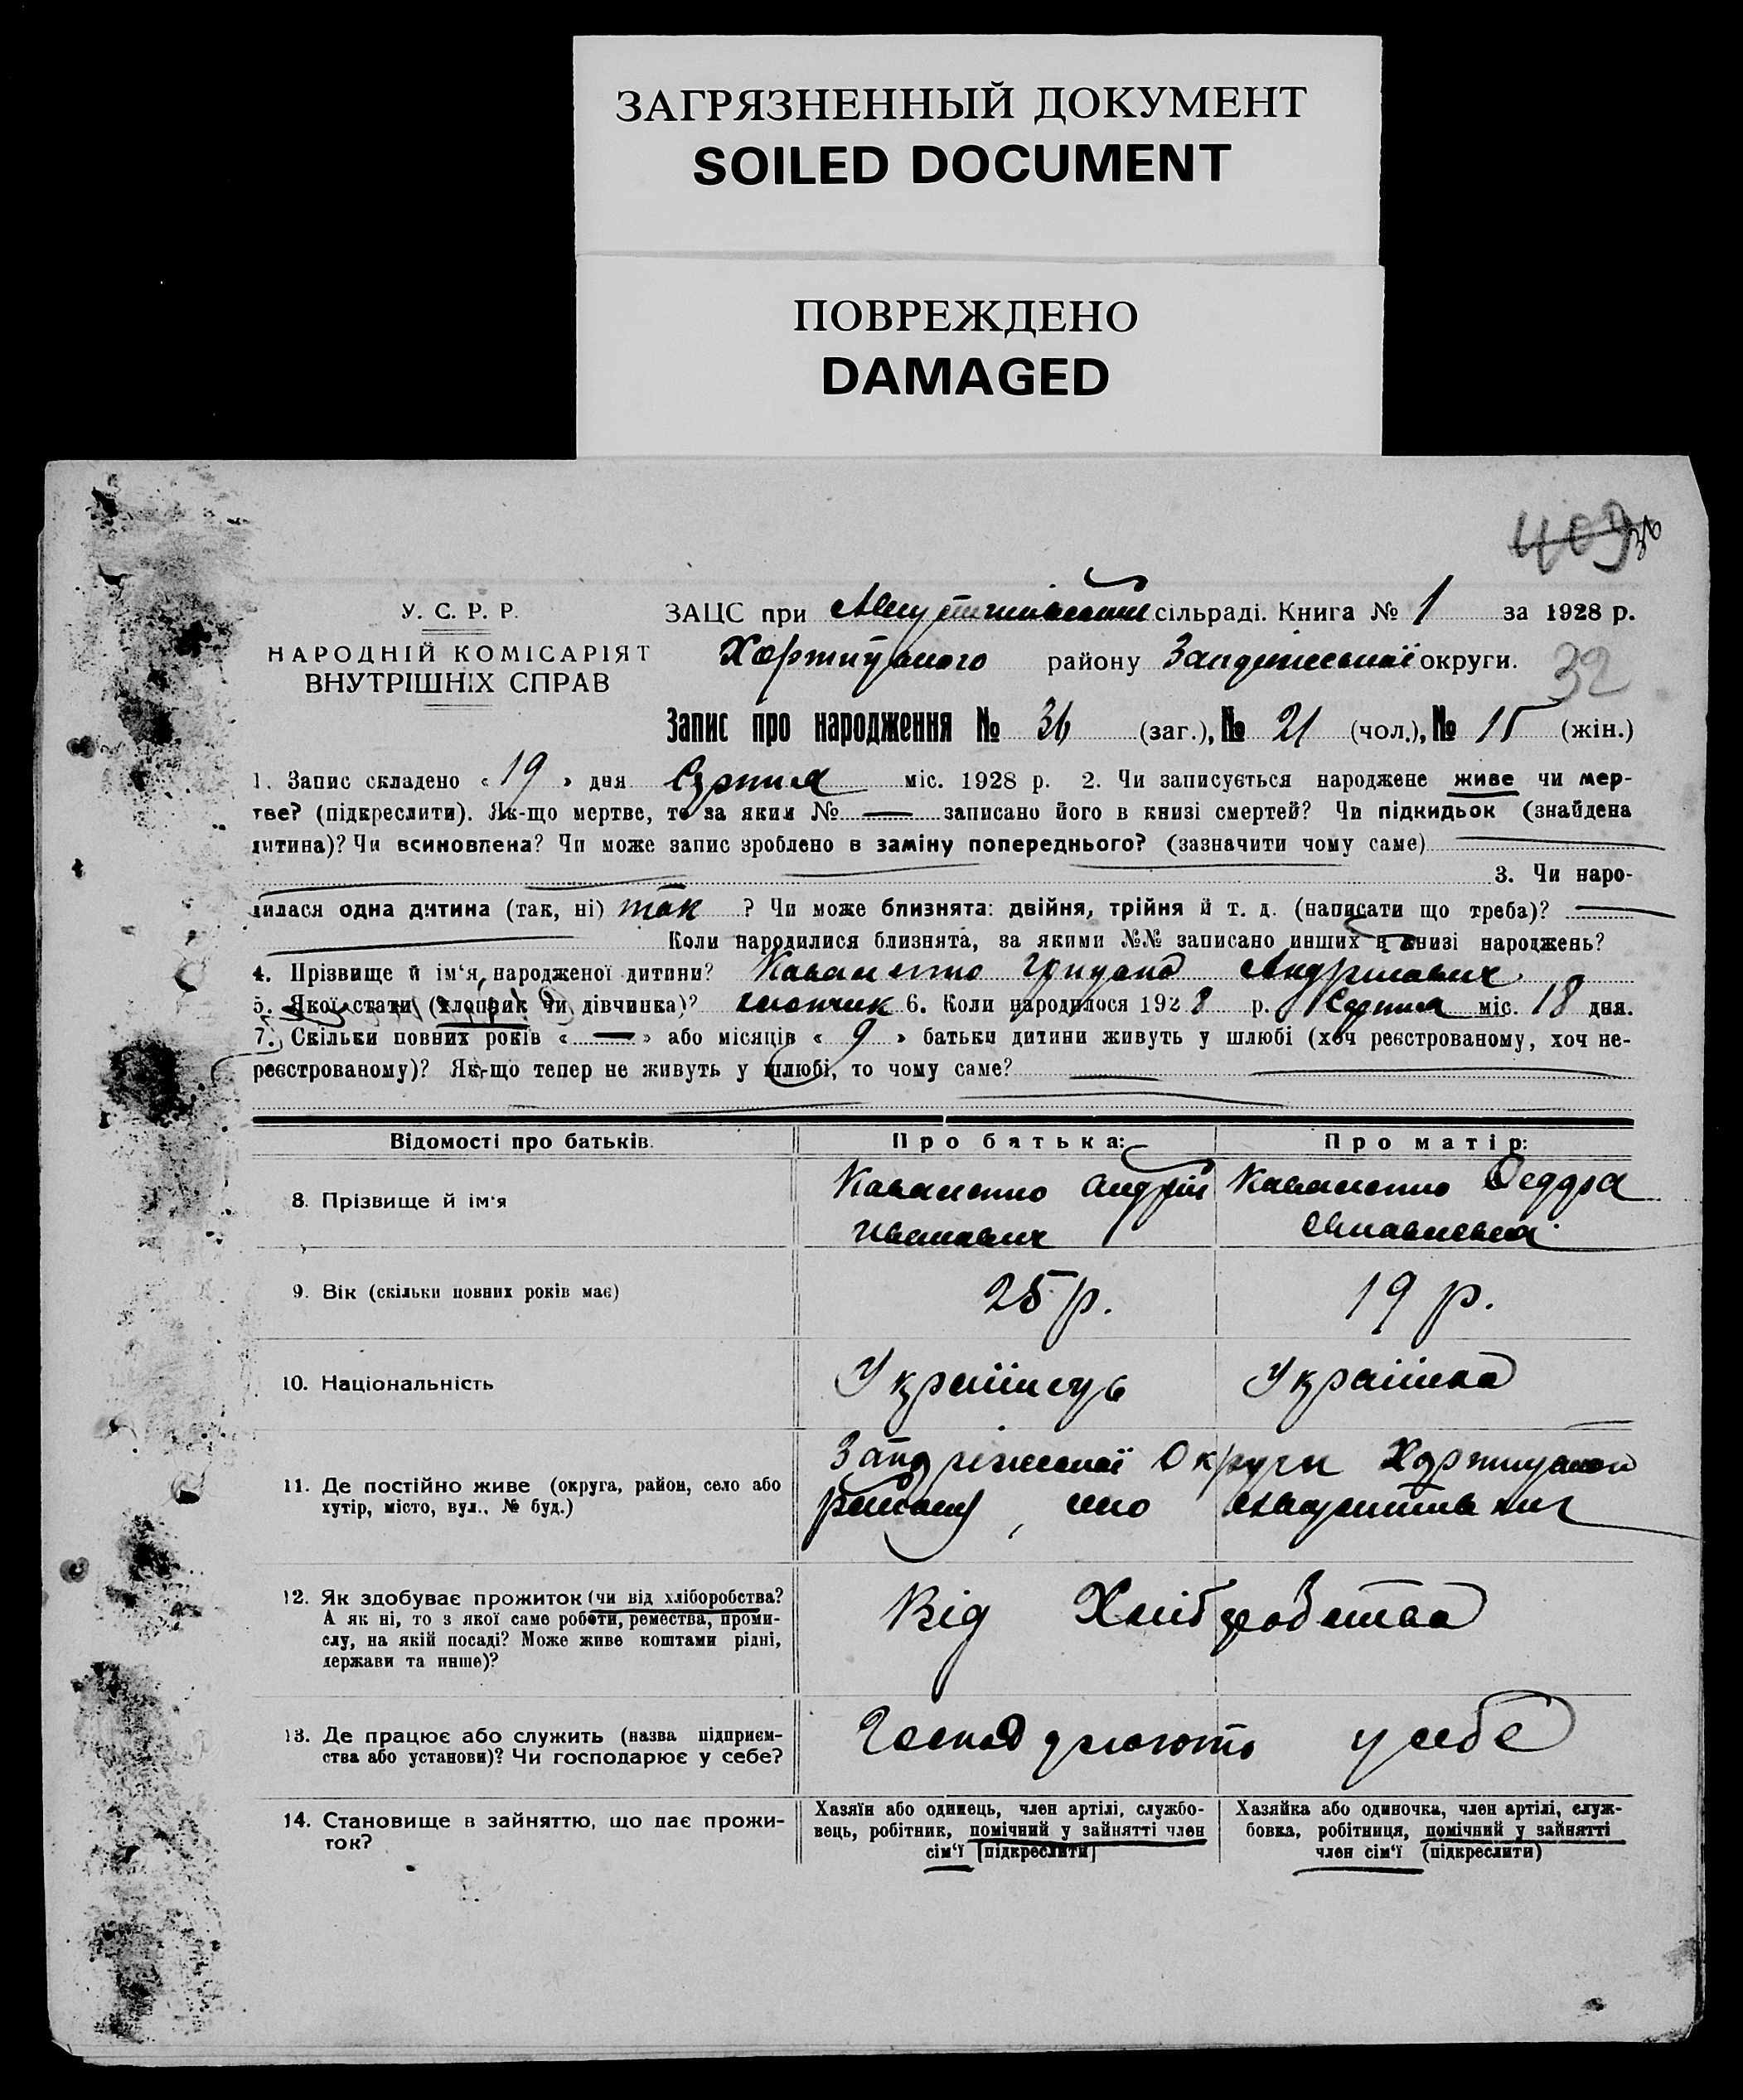 ЗАГРЯЗНЕННЫЙ ДОКУМЕНТ
SOILED DOCUMENT
ПОВРЕЖДЕНО
DAMAGED
409
У. С. Р. Р.
НАРОДНІЙ КОМІСАРІЯТ
ВНУТРІШНІХ СПРАВ
ЗАЦС при сільраді. Книга № 1 за 1928 р.
Хортицького району Запоріжської округи.
32
Запис про народження № 36 (заг.), № 21 (чол.), № 15 (жін.)
1. Запис складено « 19 » дня Серпня міс. 1928 р. 2. Чи записується народжене живе чи мер-
тве? (підкреслити). Як-що мертве, то за яким № — записано його в книзі смертей? Чи підкидьок (знайдена
дитина)? Чи всиновлена? Чи може запис зроблено в заміну попереднього? (зазначити чому саме)
3. Чи наро-
дилася одна дитина (так, ні) так ? Чи може близнята: двійня, трійня й т. д. (написати що треба)? —
Коли народилися близнята, за якими №№ записано инших в книзі народжень?
4. Прізвище й ім‘я народженої дитини? Коваленко Андрієвич
5. Якої стати (хлопчик чи дівчинка)? хлопчик 6. Коли народилося 1928 р. Серпня міс. 18 дня.
7. Скільки повних років « — » або місяців « 9 » батьки дитини живуть у шлюбі (хоч реєстрованому, хоч не-
реєстрованому)? Як-що тепер не живуть у шлюбі, то чому саме?
Відомості про батьків. Про батька: Про матір:
8. Прізвище й ім‘я
Коваленко Андрій Коваленко Федора
Іванович
9. Вік (скільки повних років має) 25 р. 19 р.
10. Національність Українець Українка
11. Де постійно живе (округа, район, село або
хутір, місто, вул., № буд.)
Запоріжської Округи Хортицького
району, село
12. Як здобуває прожиток (чи від хліборобства?
А як ні, то з якої саме роботи, ремества, проми-
слу, на якій посаді? Може живе коштами рідні,
держави та инше)?
Від Хліборобства
13. Де працює або служить (назва підприєм-
ства або установи)? Чи господарює у себе?
Господарюють у себе
14. Становище в зайняттю, що дає прожи-
ток?
Хазяїн або одинець, член артілі, службо-
вець, робітник, помічний у зайнятті член
сім‘ї (підкреслити)
Хазяйка або одиночка, член артілі, служ-
бовка, робітниця, помічний у зайнятті
член сім‘ї (підкреслити)